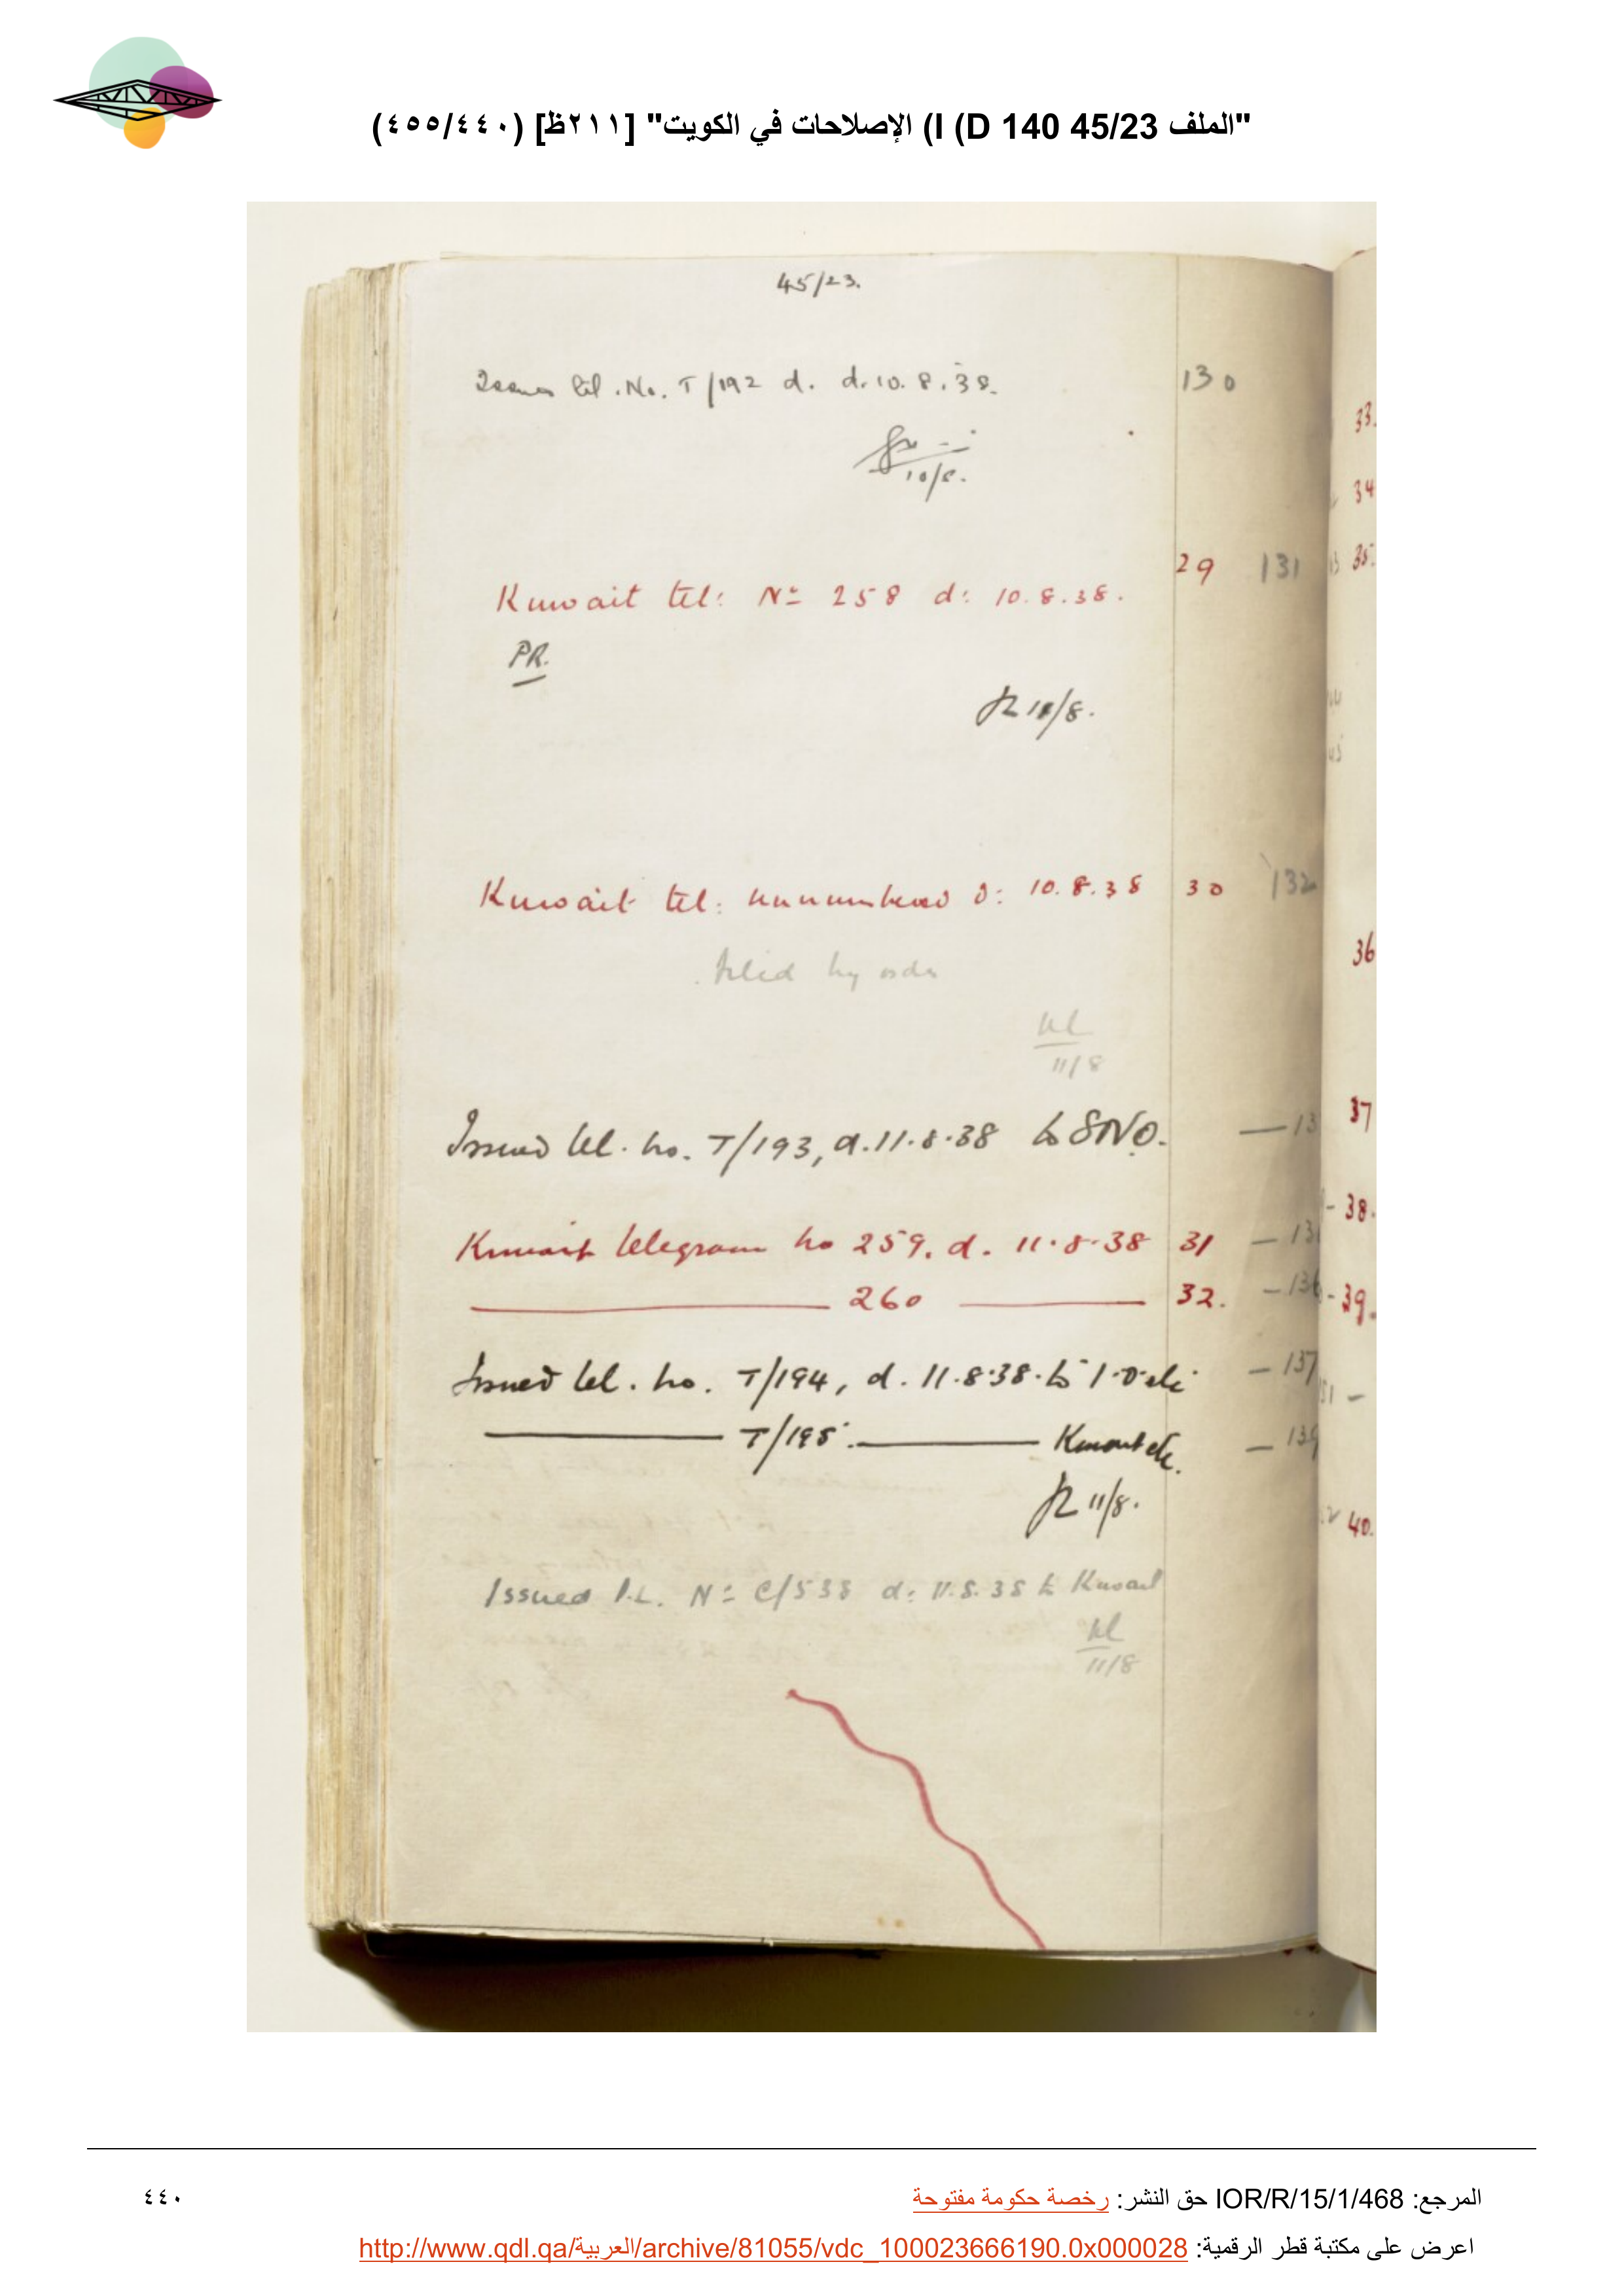 "الملف 45/23 I (D 140) الإصلاحات في الكويت" [٢١١ظ] (٤٥٥/٤٤٠)
45/23.
Issued tel. No. T/192 d. d. 10.8.38. 130
10/8.
29 131
Kuwait tel: No 258 d: 10.8.38.
PR.
11/8.
Kuwait tel: unnumbered d: 10.8.38 30 132
filed by order
11/8
Issued tel. no. T/193, d. 11.8.38 to SNO. — 13
Kuwait telegram no 259. d. 11.8.38 31 — 13
260 32. — 136
Issued tel. no. T/194, d. 11.8.38. to I.O. etc — 137
T/195. Kuwait etc. — 139
11/8.
Issued P.L. No C/538 d: 11.8.38 to Kuwait
11/8
33.
34
35.
36
37
38.
39.
40.
المرجع: IOR/R/15/1/468 حق النشر: رخصة حكومة مفتوحة
٤٤٠
اعرض على مكتبة قطر الرقمية: http://www.qdl.qa/العربية/archive/81055/vdc_100023666190.0x000028